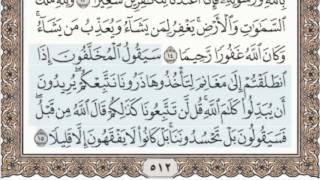 بِاللَّهِ وَرَسُولِهِ فَإِنَّا أَعْتَدْنَا لِلْكَافِرِينَ سَعِيرًا ١٣ وَلِلَّهِ مُلْكُ
السَّمَٰوَٰتِ وَالْأَرْضِ يَغْفِرُ لِمَن يَشَاءُ وَيُعَذِّبُ مَن يَشَاءُ
وَكَانَ اللَّهُ غَفُورًا رَّحِيمًا ١٤ سَيَقُولُ الْمُخَلَّفُونَ إِذَا
انطَلَقْتُمْ إِلَىٰ مَغَانِمَ لِتَأْخُذُوهَا ذَرُونَا نَتَّبِعْكُمْ يُرِيدُونَ
أَن يُبَدِّلُوا كَلَٰمَ اللَّهِ قُل لَّن تَتَّبِعُونَا كَذَٰلِكُمْ قَالَ اللَّهُ مِن قَبْلُ
فَسَيَقُولُونَ بَلْ تَحْسُدُونَنَا بَلْ كَانُوا لَا يَفْقَهُونَ إِلَّا قَلِيلًا ١٥
٥١٢